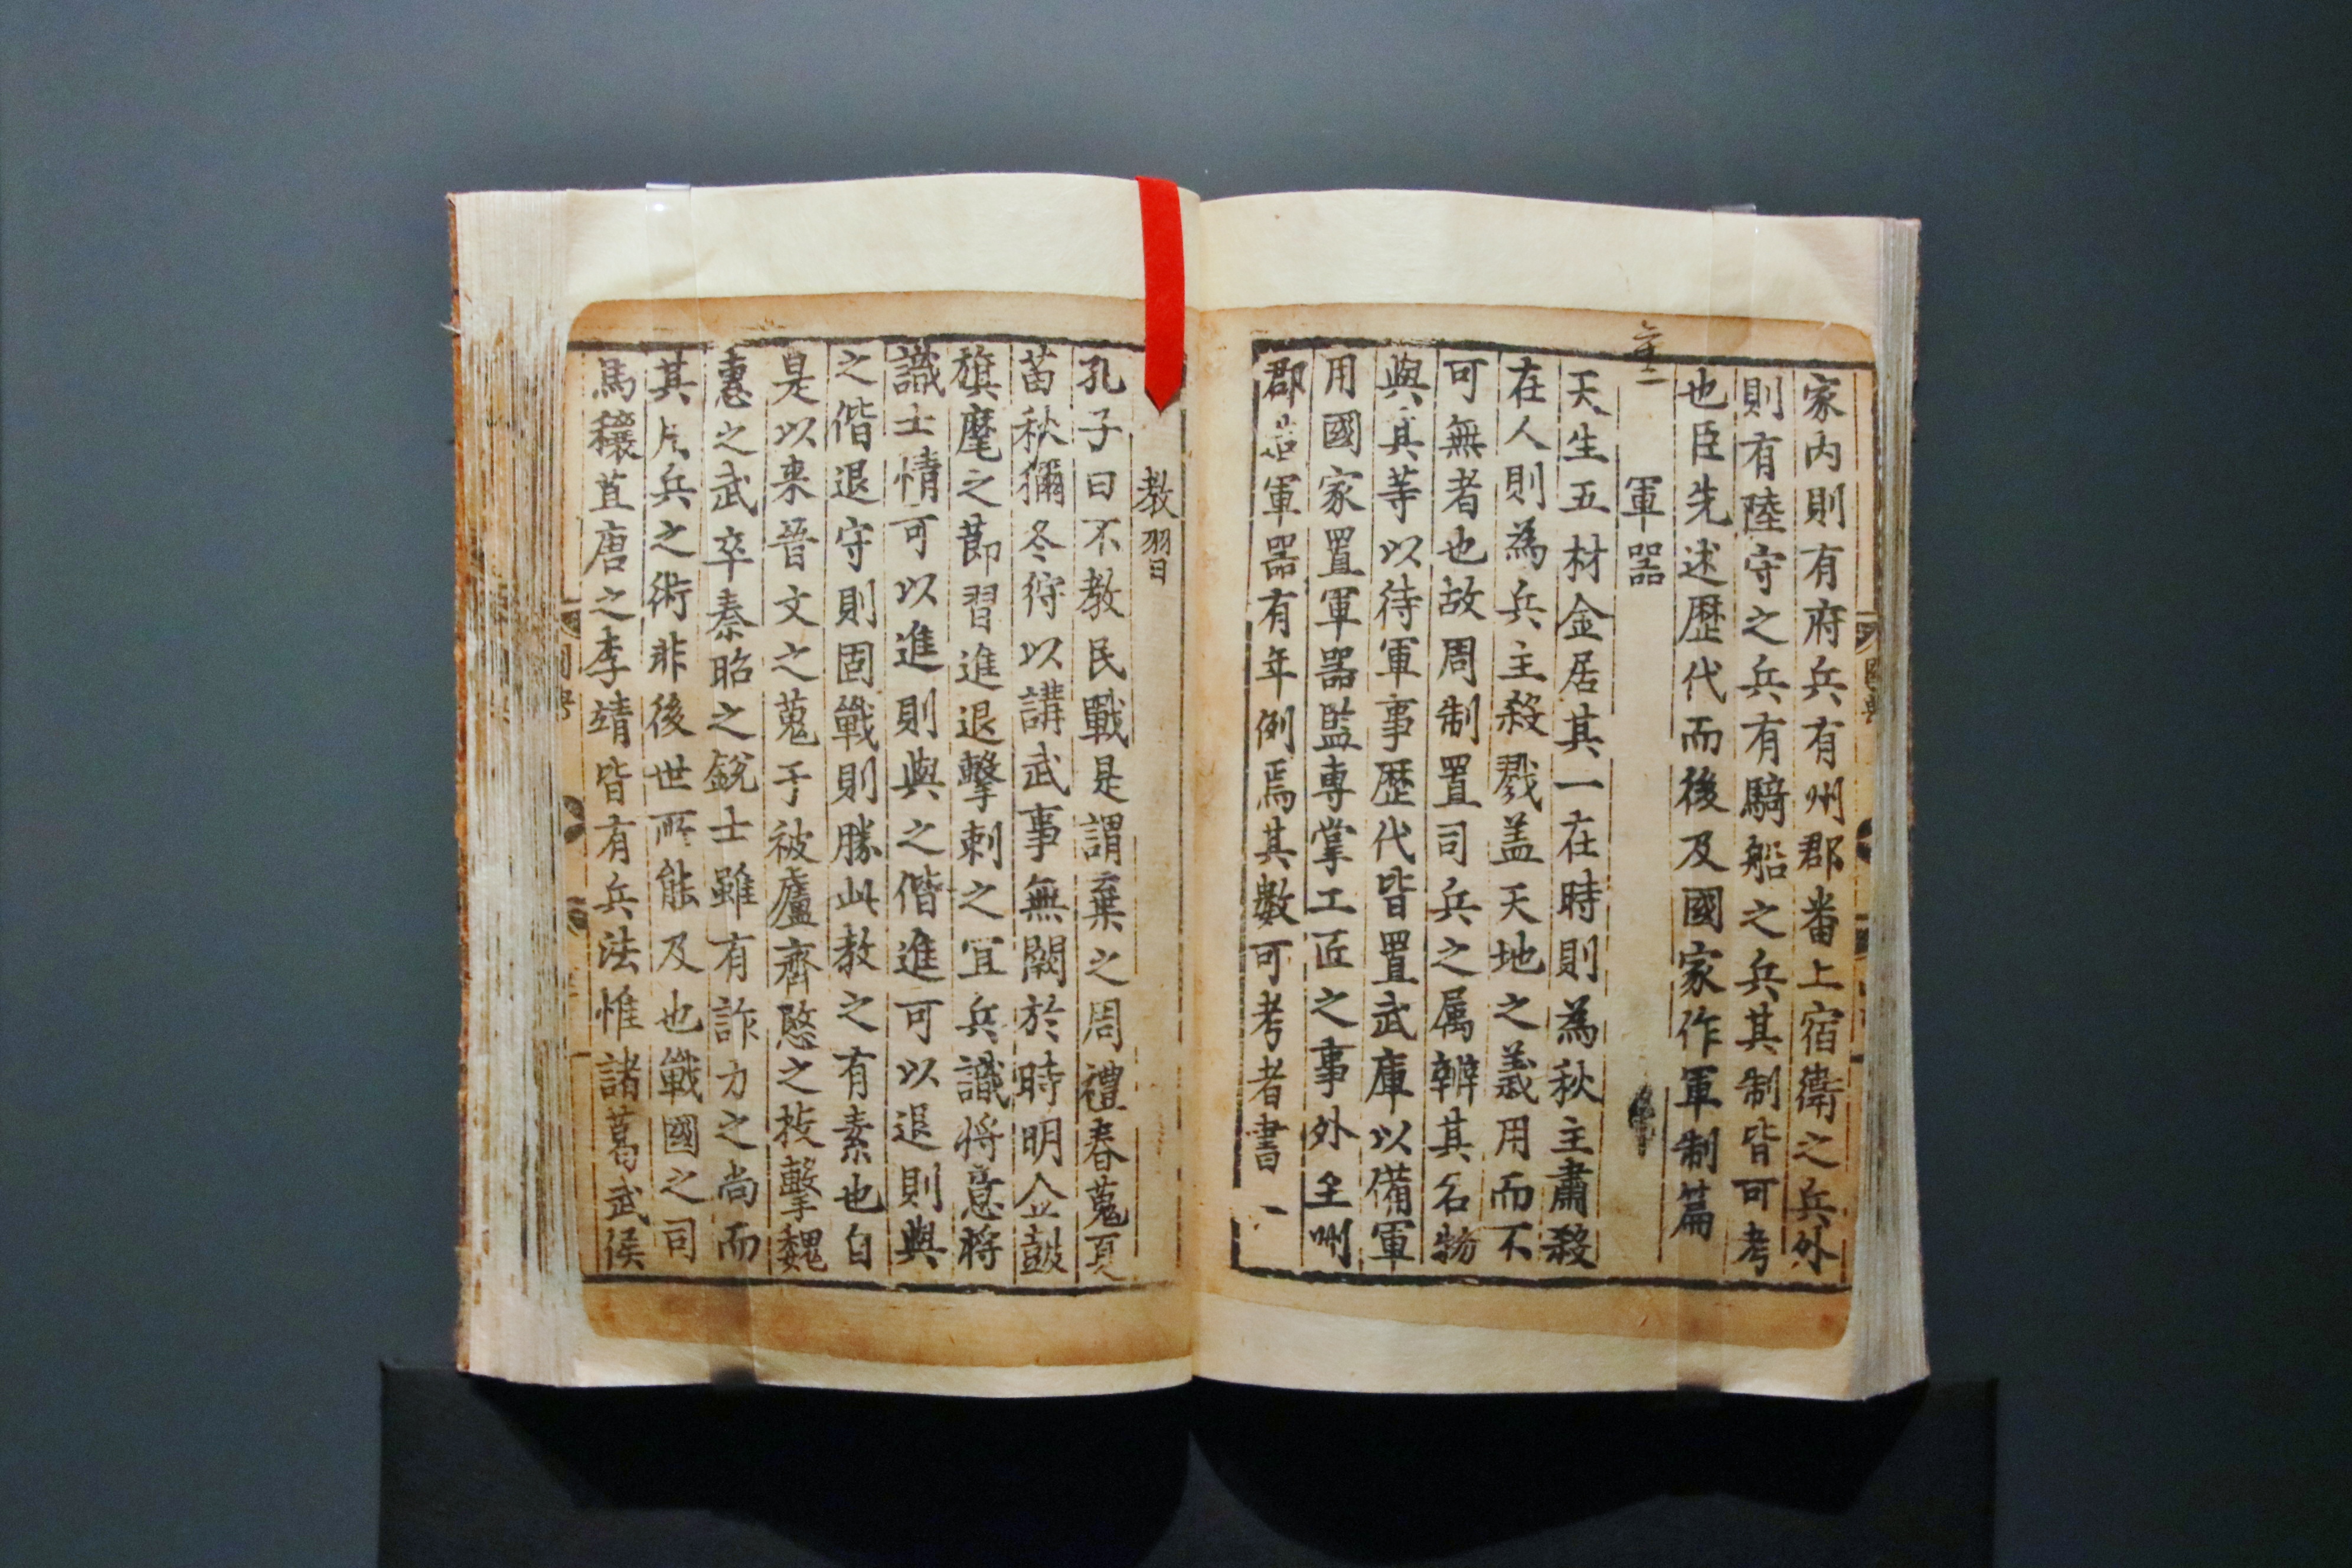 家內則有府兵有州郡番上宿衛之兵外
則有陸守之兵有騎船之兵其制皆可考
也臣先述歷代而後及國家作軍制篇
軍器
天生五材金居其一在時則為秋主肅殺
在人則為兵主殺戮盖天地之義用而不
可無者也故周制置司兵之属辨其名物
與其等以待軍事歷代皆置武庫以備軍
用國家置軍器監專掌工匠之事外至州
郡造軍器有年例焉其數可考者書
教習
孔子曰不教民戰是謂棄之周禮春蒐夏
苗秋獮冬狩以講武事無闕於時明金鼓
旗麾之節習進退擊刺之宜兵識將意將
識士情可以進則與之偕進可以退則與
之偕退守則固戰則勝此教之有素也自
是以来晉文之蒐于被廬齊愍之技擊魏
惠之武卒秦昭之銳士雖有詐力之尚而
其用兵之術非後世所能及也戰國之司
馬穰苴唐之李靖皆有兵法惟諸葛武侯